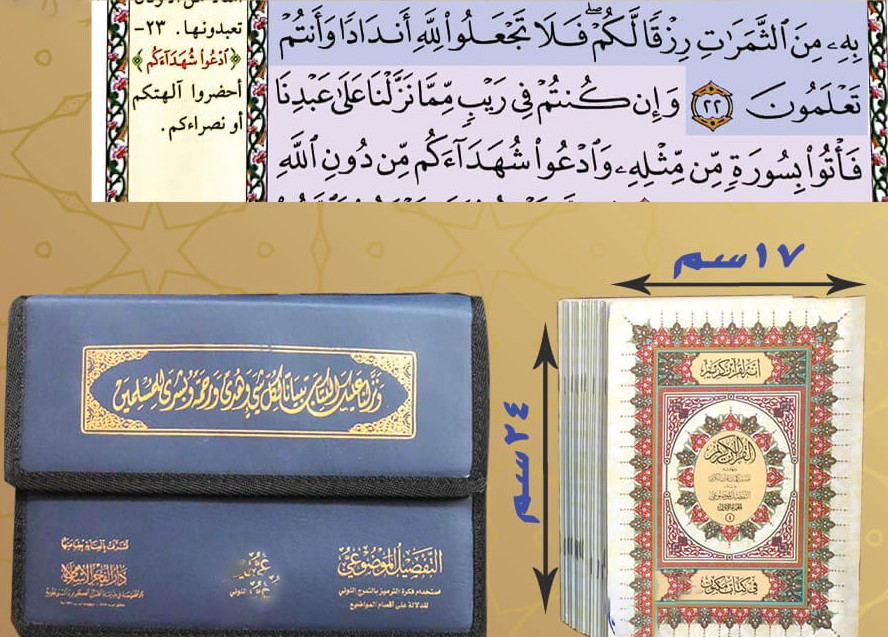 بِهِۦ مِنَ ٱلثَّمَرَٰتِ رِزْقًا لَّكُمْ ۖ فَلَا تَجْعَلُوا۟ لِلَّهِ أَندَادًا وَأَنتُمْ
تَعْلَمُونَ ٢٢ وَإِن كُنتُمْ فِى رَيْبٍ مِّمَّا نَزَّلْنَا عَلَىٰ عَبْدِنَا
فَأْتُوا۟ بِسُورَةٍ مِّن مِّثْلِهِۦ وَٱدْعُوا۟ شُهَدَآءَكُم مِّن دُونِ ٱللَّهِ
تعبدونها. ٢٣-
﴿ٱدْعُوا۟ شُهَدَآءَكُم﴾
أحضروا آلهتكم
أو نصراءكم.
١٧سم
٢٤سم
ونزلنا عليك الكتاب تبيانا لكل شيء وهدى ورحمة وبشرى للمسلمين
التفصيل الموضوعي
باستخدام فكرة الترميز بالتدرج اللوني
للدلالة على أقسام المواضيع
دار الفجر الإسلامي
إنه لقرآن كريم
القرآن الكريم
التفصيل الموضوعي
في كتاب مكنون